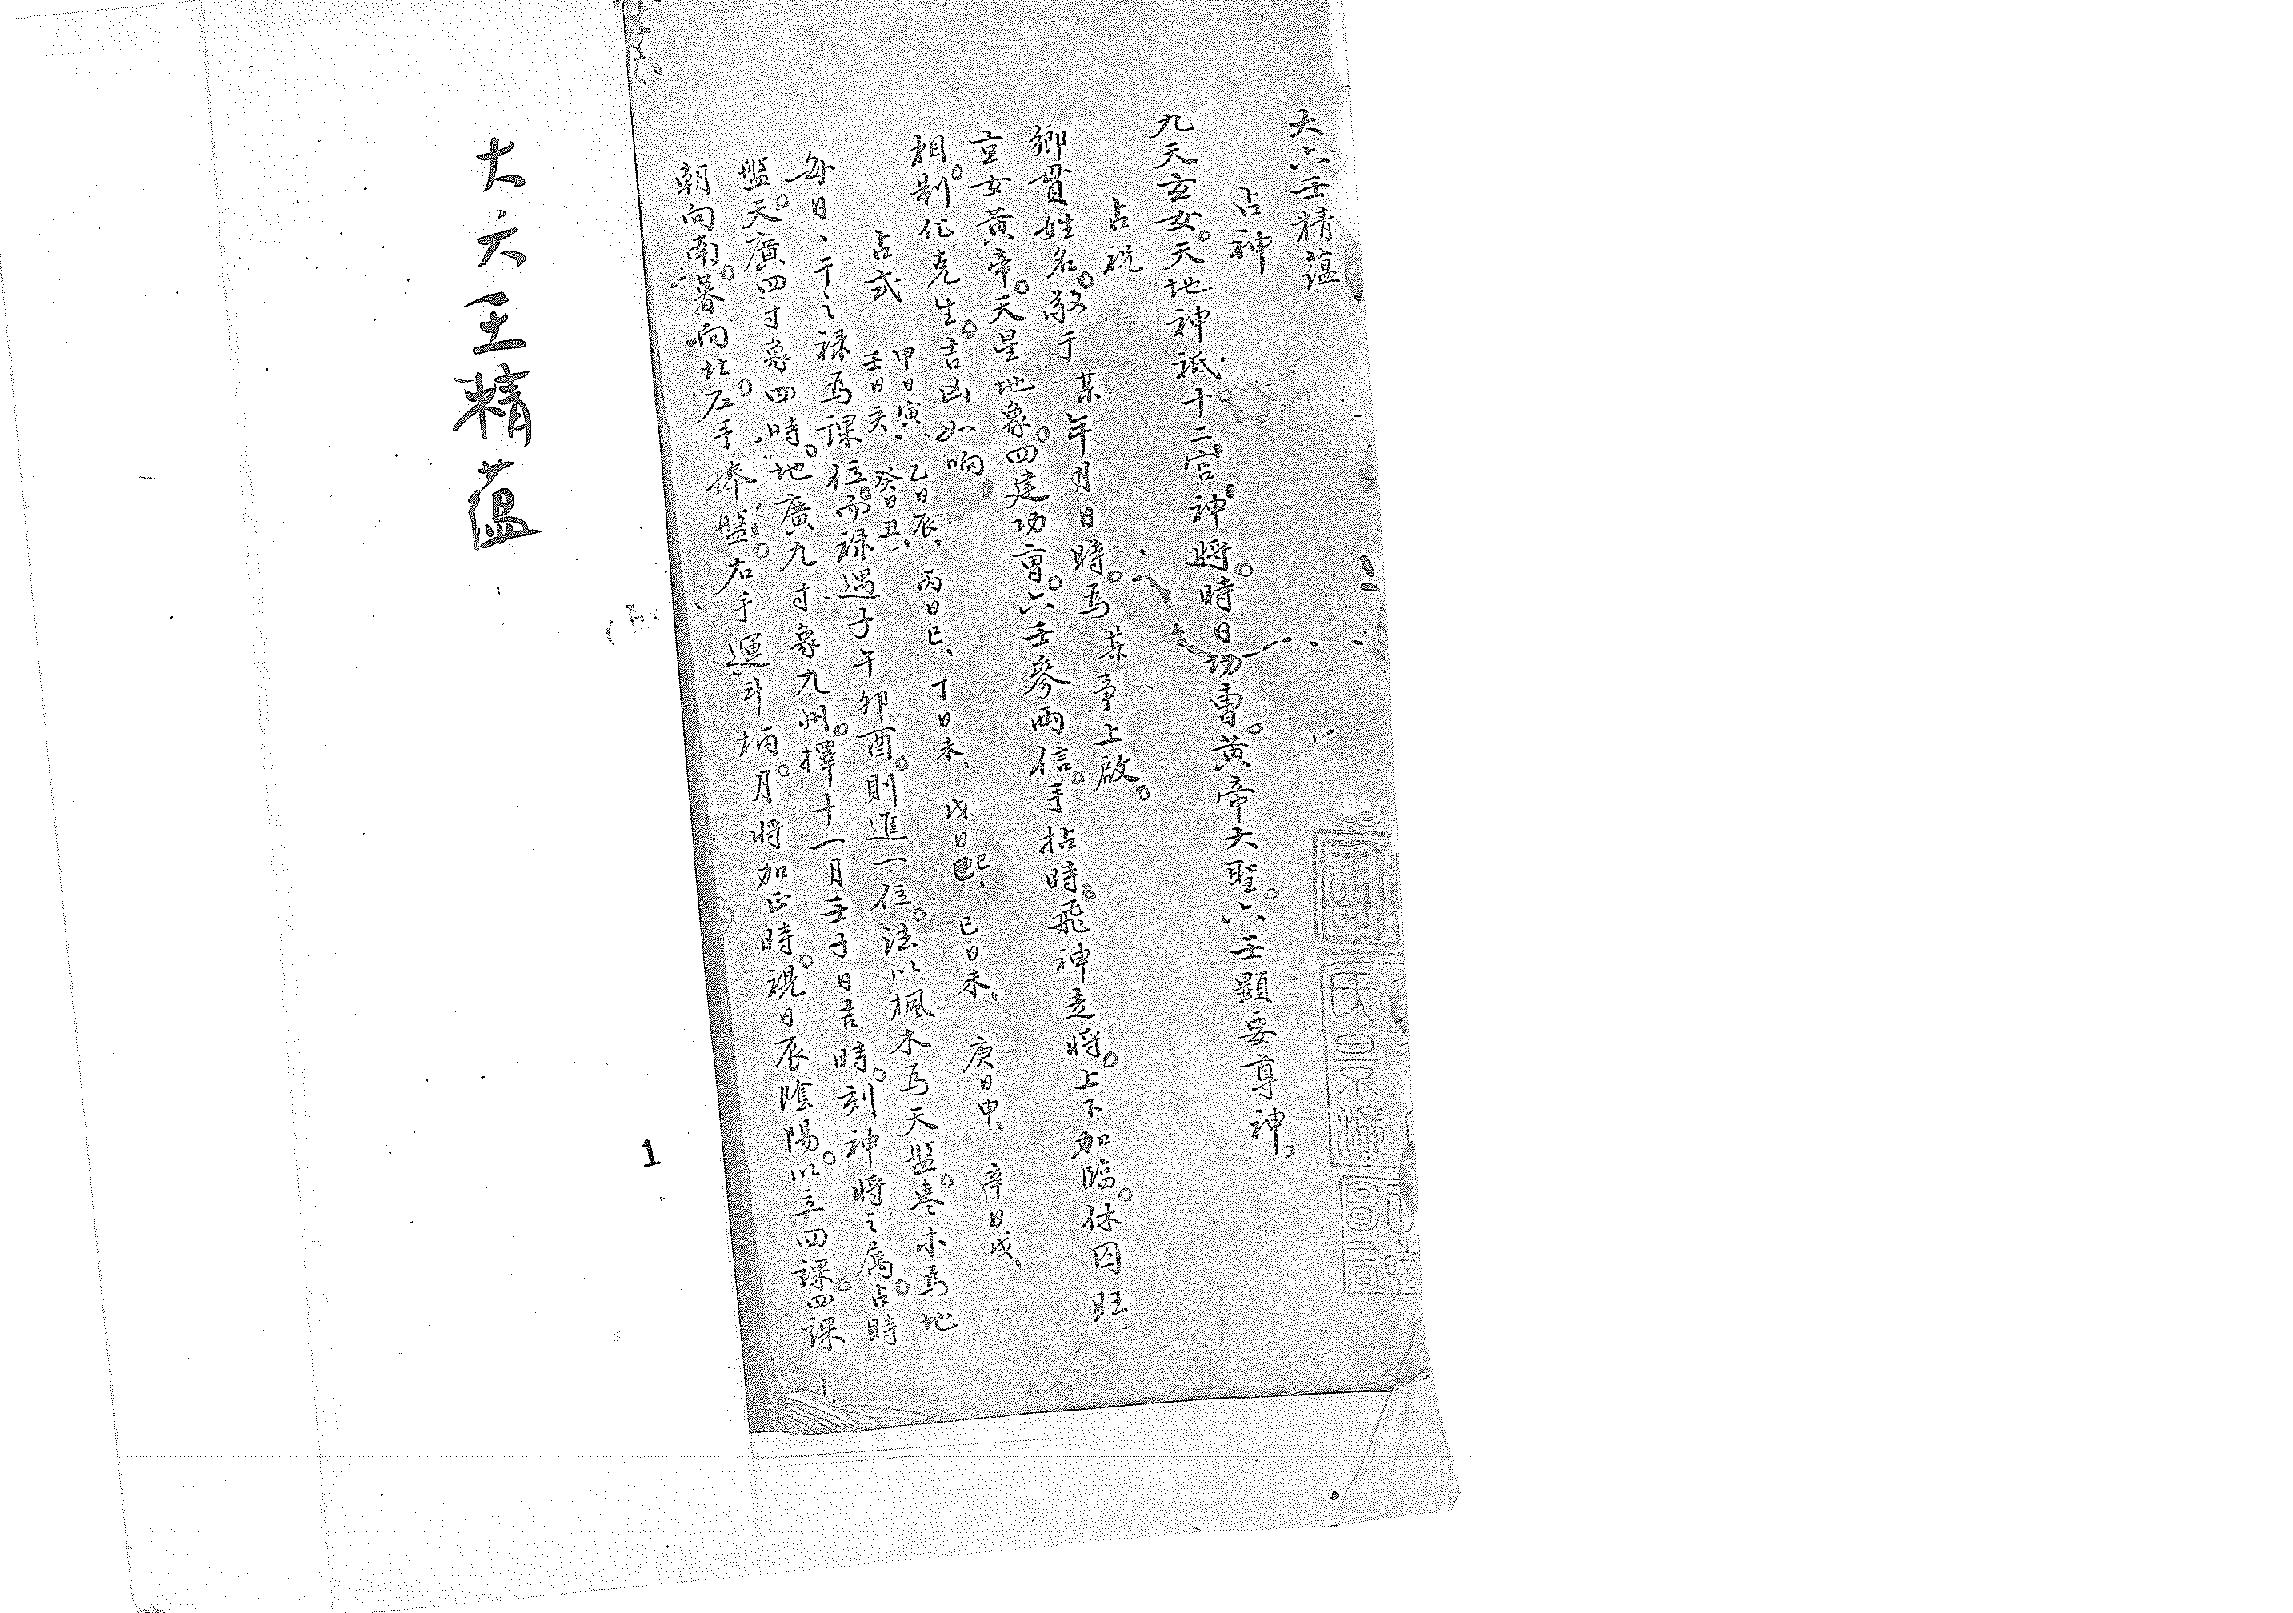 大六壬精蘊
占神
九天玄女。天地神祇。十二宮神將。時日功曹。黃帝大聖。六壬顯妥尊神。
占祝
鄉貫姓名。敬于 某年月日時。為 某事上啟。
玄女黃帝。天星地象。四建功曹。六壬參兩信。手拈時。飛神走將。上下加臨。休囚旺
相。制化克生。吉凶如响
占式 甲日寅、乙日辰、丙日巳、丁日未、戊日巳、己日未、庚日申、辛日戌、
壬日亥、癸日丑、
每日、干之祿為課位。祿遇子午卯酉。則進一位。法以楓木為天盤。棗木為地
盤。天廣四寸象四時。地廣九寸象九州。擇十一月壬子日吉時。刻神將之屬。占時
朝向南。暮向北。左手捧盤。右手運斗柄。月將加正時。視日辰陰陽。以立四課。四課
大六壬精蘊
1